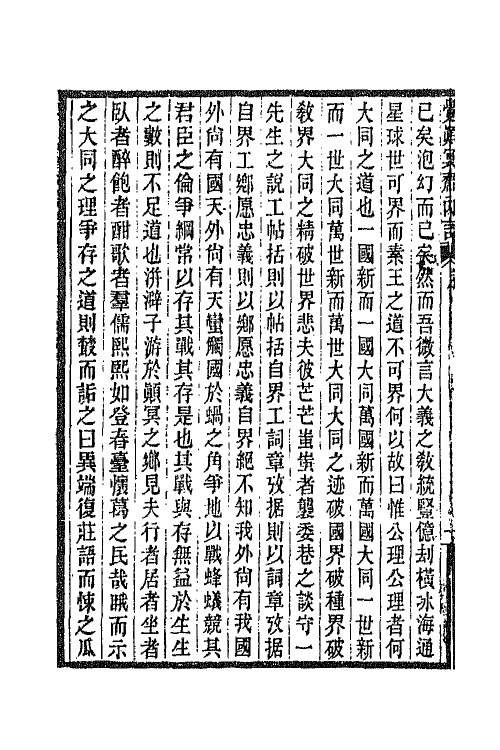 覺顛冥齋內言
已矣泡幻而已矣然而吾微言大義之敎統豎億刦橫冰海通
星球世可界而素王之道不可界何以故曰惟公理公理者何
大同之道也一國新而一國大同萬國新而萬國大同一世新
而一世大同萬世新而萬世大同大同之迹破國界破種界破
敎界大同之精破世界悲夫彼芒芒蚩蚩者襲委巷之談守一
先生之說工帖括則以帖括自界工詞章攷据則以詞章攷据
自界工鄉愿忠義則以鄉愿忠義自界絕不知我外尙有我國
外尙有國天外尙有天蠻觸國於蝸之角爭地以戰蜂蟻競其
君臣之倫爭綱常以存其戰其存是也其戰與存無益於生生
之數則不足道也洴澼子游於顚冥之鄉見夫行者居者坐者
臥者醉飽者酣歌者羣儒熙熙如登春臺懷葛之民哉哦而示
之大同之理爭存之道則聱而詬之曰異端復莊語而悚之瓜